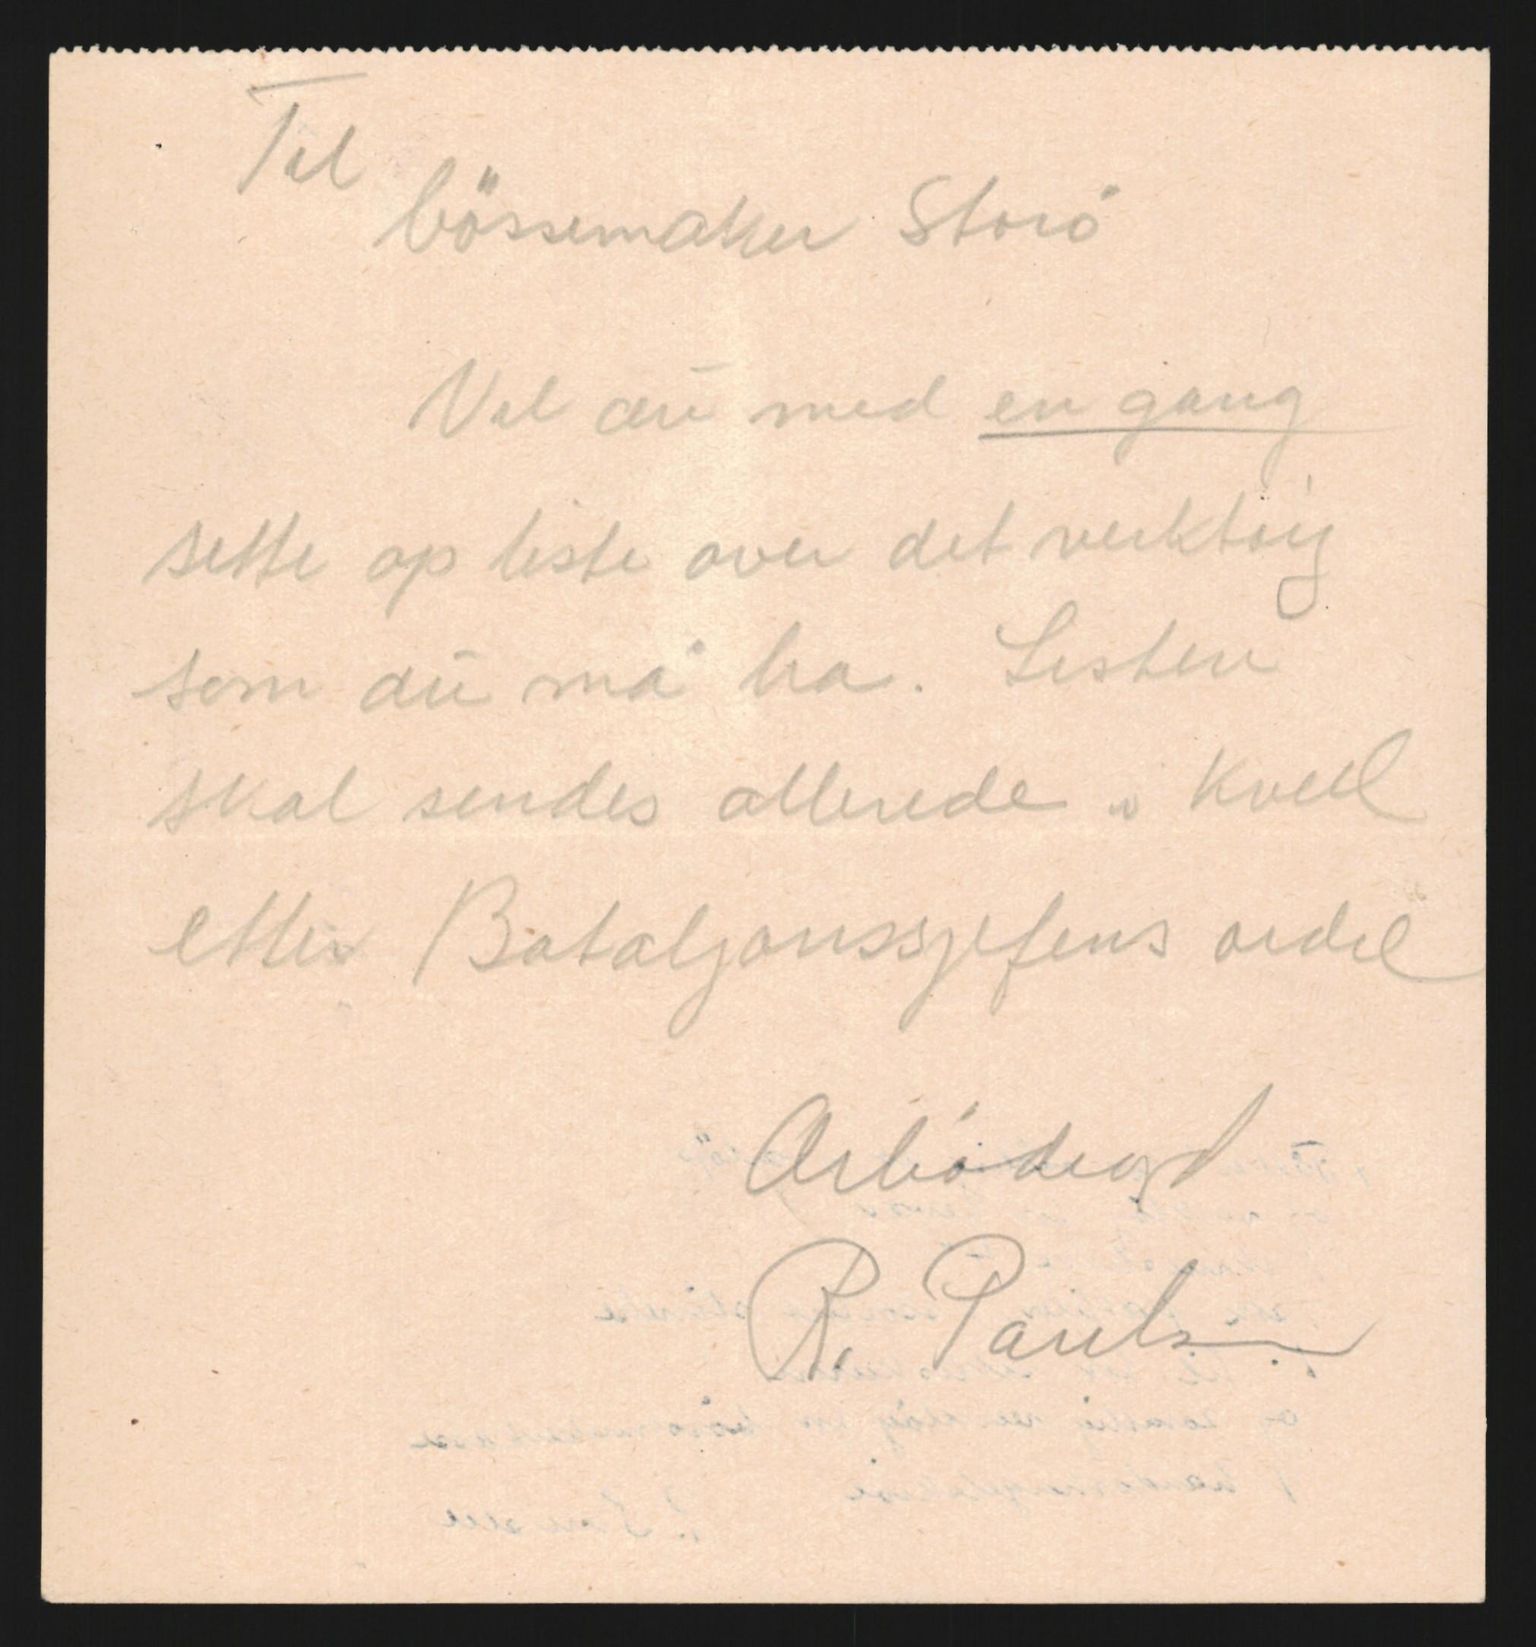 Til
bössemaker Storö
Vil du med en gang
sette op liste over det verktöiy
som du må ha. Listen
skal sendes allerede i kvell
etter Bataljonssjefens ordre
Arbödigst
R. Paulsen